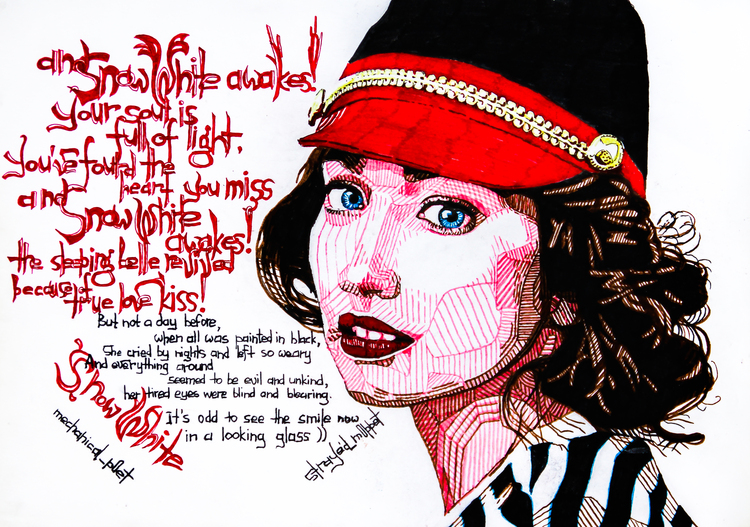 and Snow White awakes!
your soul is
full of light,
you've found the
heart you miss
and Snow White
awakes!
the sleeping belle revived
because of
true love kiss!
But not a day before,
when all was painted in black,
She cried by nights and left so weary
And everything around
seemed to be evil and unkind,
her tired eyes were blind and blearing.
It's odd to see the smile now
in a looking glass ))
Snow White